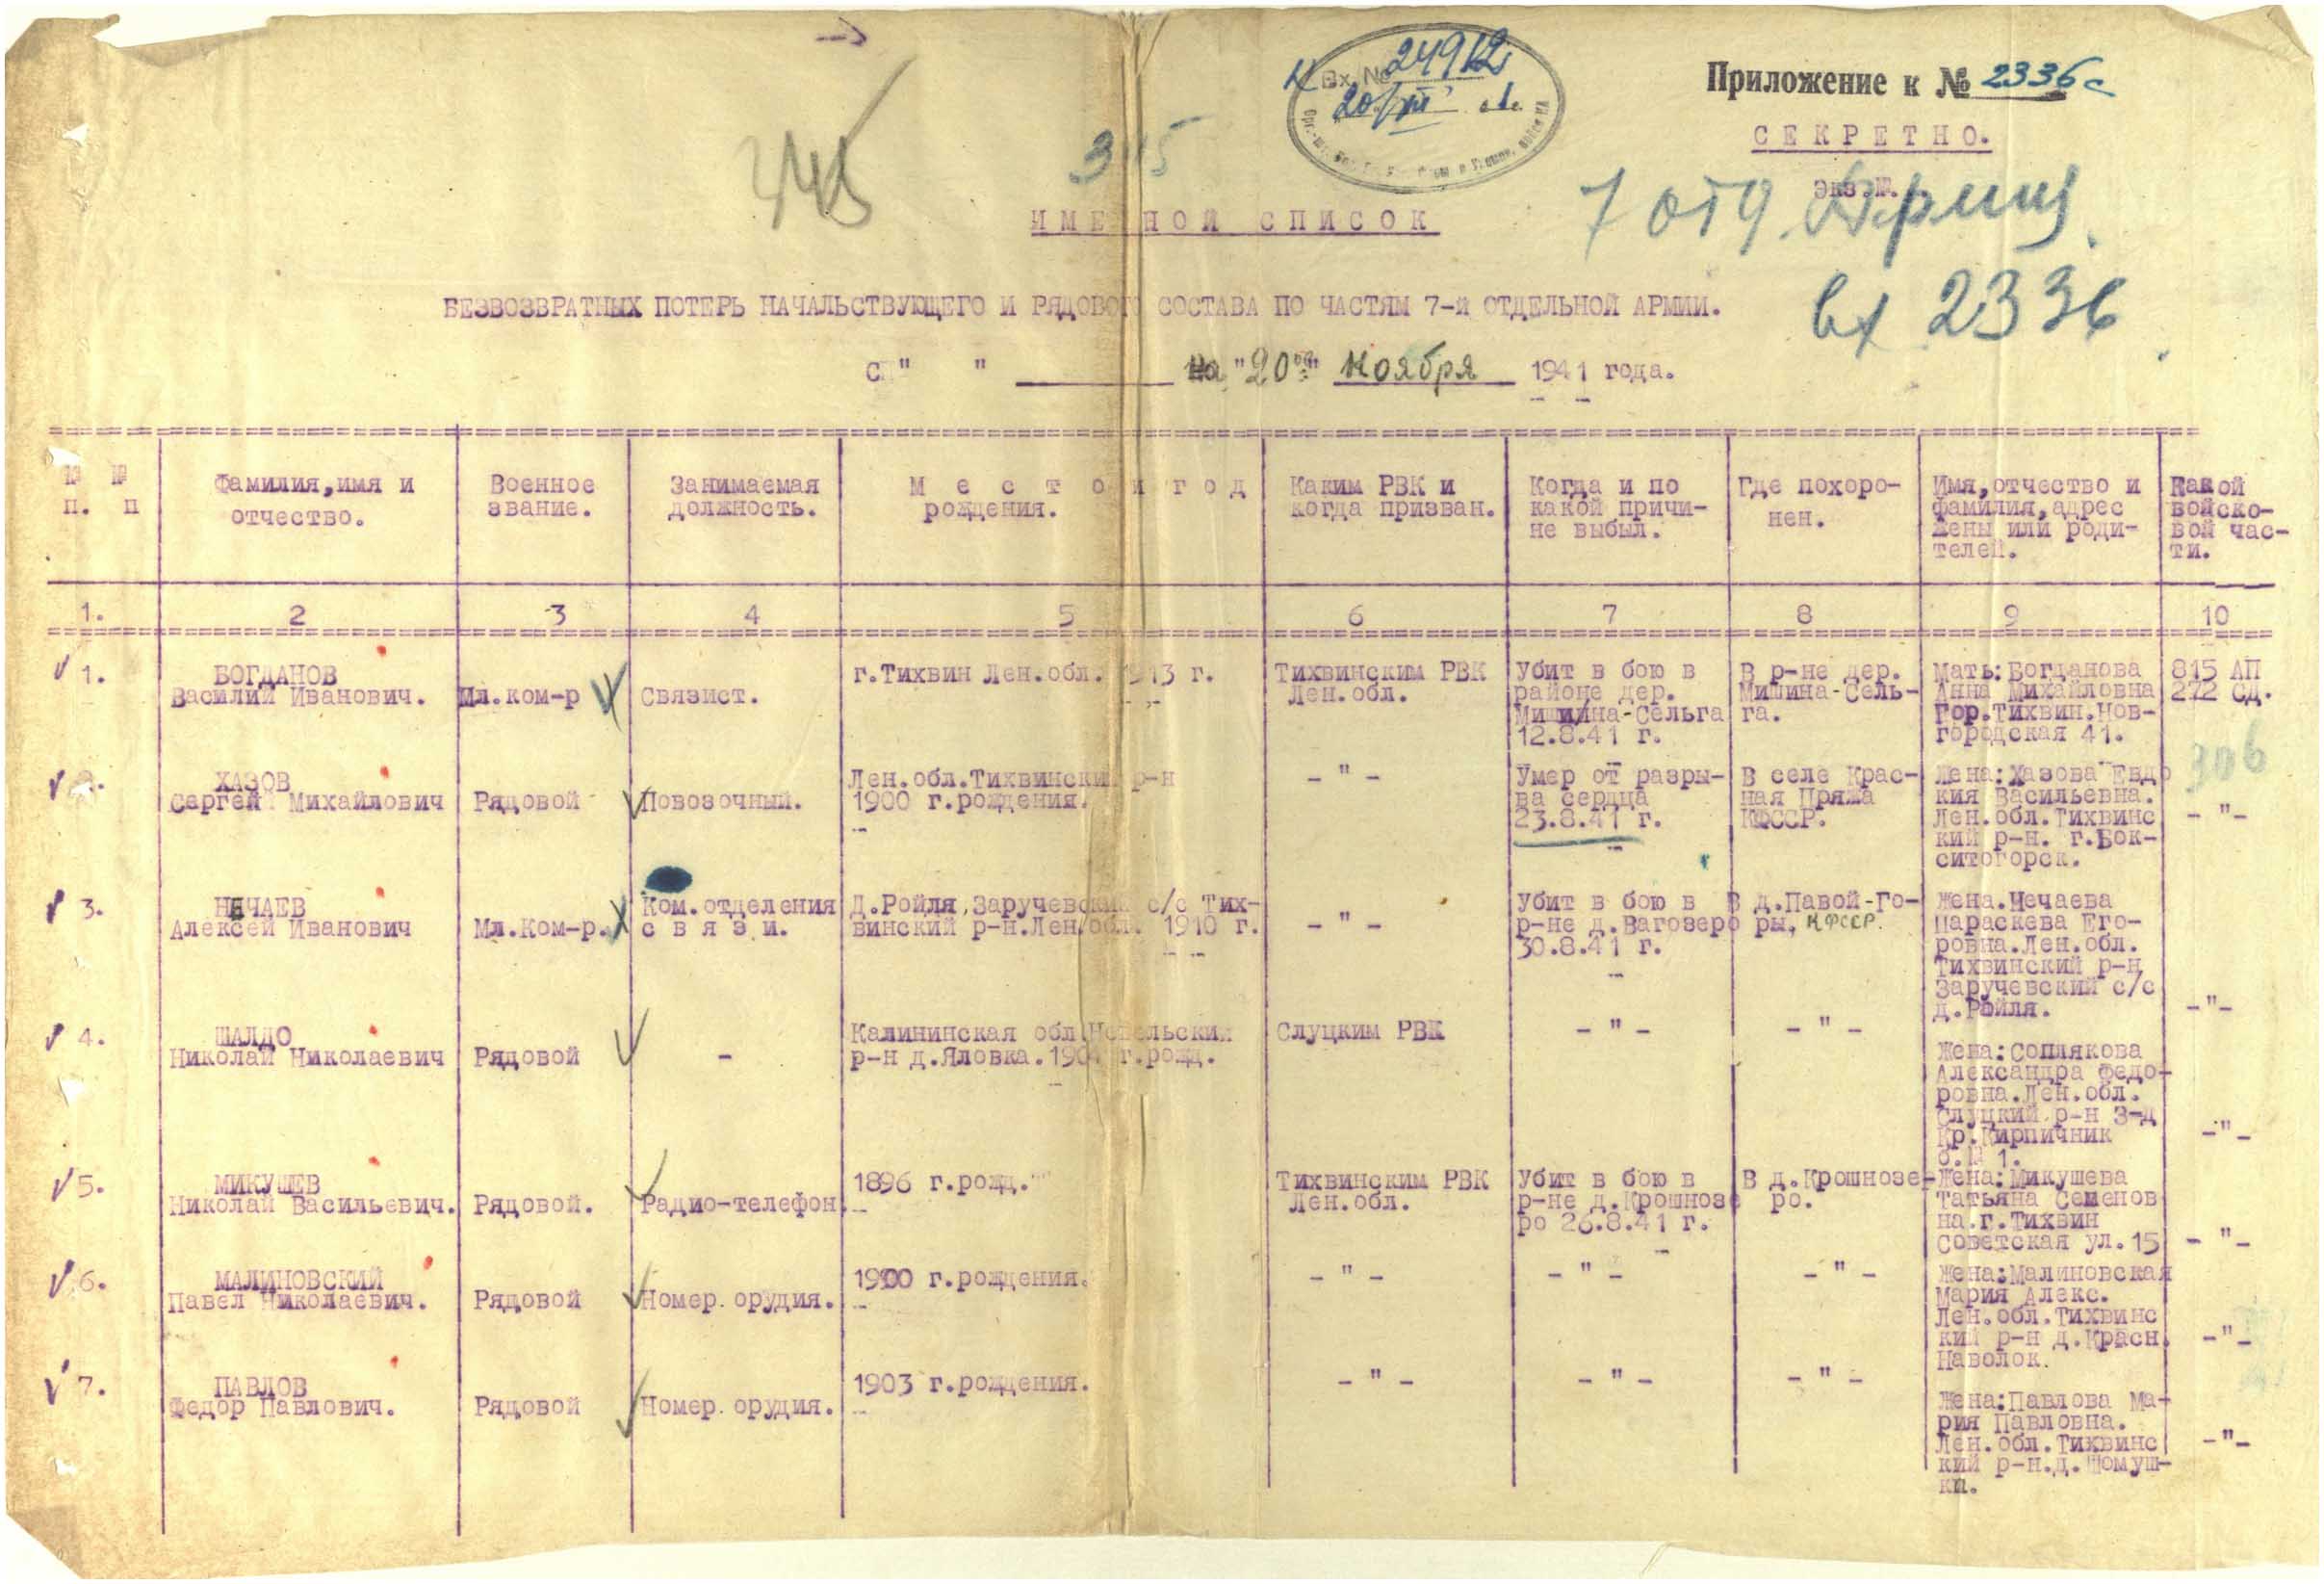 Вх. № 24912
20/XII
Приложение к № 2336с
СЕКРЕТНО.
экз.№.
345
7 отд. Армии
вх 2336
ИМЕННОЙ СПИСОК
БЕЗВОЗВРАТНЫХ ПОТЕРЬ НАЧАЛЬСТВУЮЩЕГО И РЯДОВОГО СОСТАВА ПО ЧАСТЯМ 7-й ОТДЕЛЬНОЙ АРМИИ.
с " " на "20ое" ноября 1941 года.
№ №
п. п
Фамилия,имя и
отчество.
Военное
звание.
Занимаемая
должность.
Место и год
рождения.
Каким РВК и
когда призван.
Когда и по
какой причи-
не выбыл.
Где похоро-
нен.
Имя,отчество и
фамилия,адрес
жены или роди-
телей.
Какой
войско-
вой час-
ти.
1. 2 3 4 5 6 7 8 9 10
1.
БОГДАНОВ
Василий Иванович.
Мл.ком-р
Связист.
г.Тихвин Лен.обл. 1913 г.
Тихвинским РВК
Лен.обл.
Убит в бою в
районе дер.
Мишина-Сельга
12.8.41 г.
В р-не дер.
Мишина-Сель-
га.
Мать:Богданова
Анна Михайловна
Гор.Тихвин.Нов-
городская 41.
815 АП
272 СД.
306
2.
ХАЗОВ
Сергей Михайлович
Рядовой
Повозочный.
Лен.обл.Тихвинский р-н
1900 г.рождения.
- " -
Умер от разры-
ва сердца
23.8.41 г.
В селе Крас-
ная Пряжа
КФССР.
Жена:Хазова Евдо
кия Васильевна.
Лен.обл.Тихвинс
кий р-н. г.Бок-
ситогорск.
- "-
3.
НЕЧАЕВ
Алексей Иванович
Мл.Ком-р.
Ком.отделения
связи.
Д.Ройля,Заручевский с/с Тих-
винский р-н.Лен.обл. 1910 г.
- " -
Убит в бою в
р-не д.Вагозеро
30.8.41 г.
В д.Павой-Го-
ры, КФССР.
Жена.Нечаева
Параскева Его-
ровна.Лен.обл.
Тихвинский р-н
Заручевский с/с
д.Ройля.
-"-
4.
ШАЛДО
Николай Николаевич
Рядовой
-
Калининская обл.Невельский
р-н д.Яловка.1904 г.рожд.
Слуцким РВК
- " -
- " -
Жена:Соплякова
Александра Федо-
ровна.Лен.обл.
Слуцкий р-н З-д
Кр.Кирпичник
б.№ 1.
-"-
5.
МИКУШЕВ
Николай Васильевич.
Рядовой.
Радио-телефон
1896 г.рожд.
Тихвинским РВК
Лен.обл.
Убит в бою в
р-не д.Крошнозе
ро 26.8.41 г.
В д.Крошнозе-
ро.
Жена:Микушева
Татьяна Семенов
на.г.Тихвин
Советская ул.15
- "-
6.
МАЛИНОВСКИЙ
Павел Николаевич.
Рядовой
Номер орудия.
1900 г.рождения.
- " -
- " -
- " -
Жена:Малиновская
Мария Алекс.
Лен.обл.Тихвинс
кий р-н д.Красн.
Наволок.
-"-
7.
ПАВЛОВ
Федор Павлович.
Рядовой
Номер орудия.
1903 г.рождения.
- " -
- " -
- " -
Жена:Павлова Ма-
рия Павловна.
Лен.обл.Тихвинс
кий р-н.д.Шомуш-
ки.
-"-